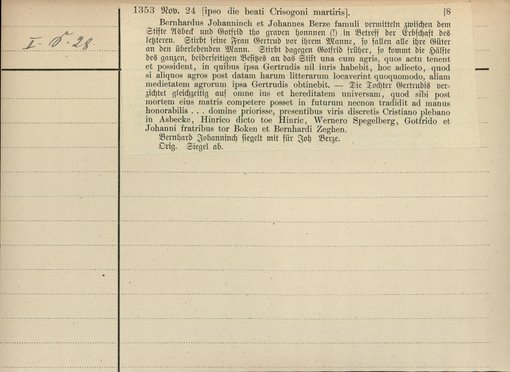 1353 Nov. 24 [ipso die beati Crisogoni martiris]. [8
I. F. 28
Bernhardus Johanninch et Johannes Berze famuli vermitteln zwischen dem
Stifte Asbeck und Gotfrid tho graven homnen (!) in Betreff der Erbschaft des
letzteren. Stirbt seine Frau Gertrud vor ihrem Manne, so fallen alle ihre Güter
an den überlebenden Mann. Stirbt dagegen Gotfrid früher, so kommt die Hälfte
des ganzen, beiderseitigen Besitzes an das Stift una cum agris, quos actu tenent
et possident, in quibus ipsa Gertrudis nil iuris habebit, hoc adiecto, quod
si aliquos agros post datam harum litterarum locaverint quoquomodo, aliam
medietatem agrorum ipsa Gertrudis obtinebit. — Die Tochter Gertrudis ver-
zichtet gleichzeitig auf omne ius et hereditatem universam, quod sibi post
mortem eius matris competere posset in futurum necnon tradidit ad manus
honorabilis . . . domine priorisse, presentibus viris discretis Cristiano plebano
in Asbecke, Hinrico dicto toe Hinric, Wernero Spegelberg, Gotfrido et
Johanni fratribus tor Boken et Bernhardi Zeghen.
Bernhard Johanninch siegelt mit für Joh Berze.
Orig. Siegel ab.